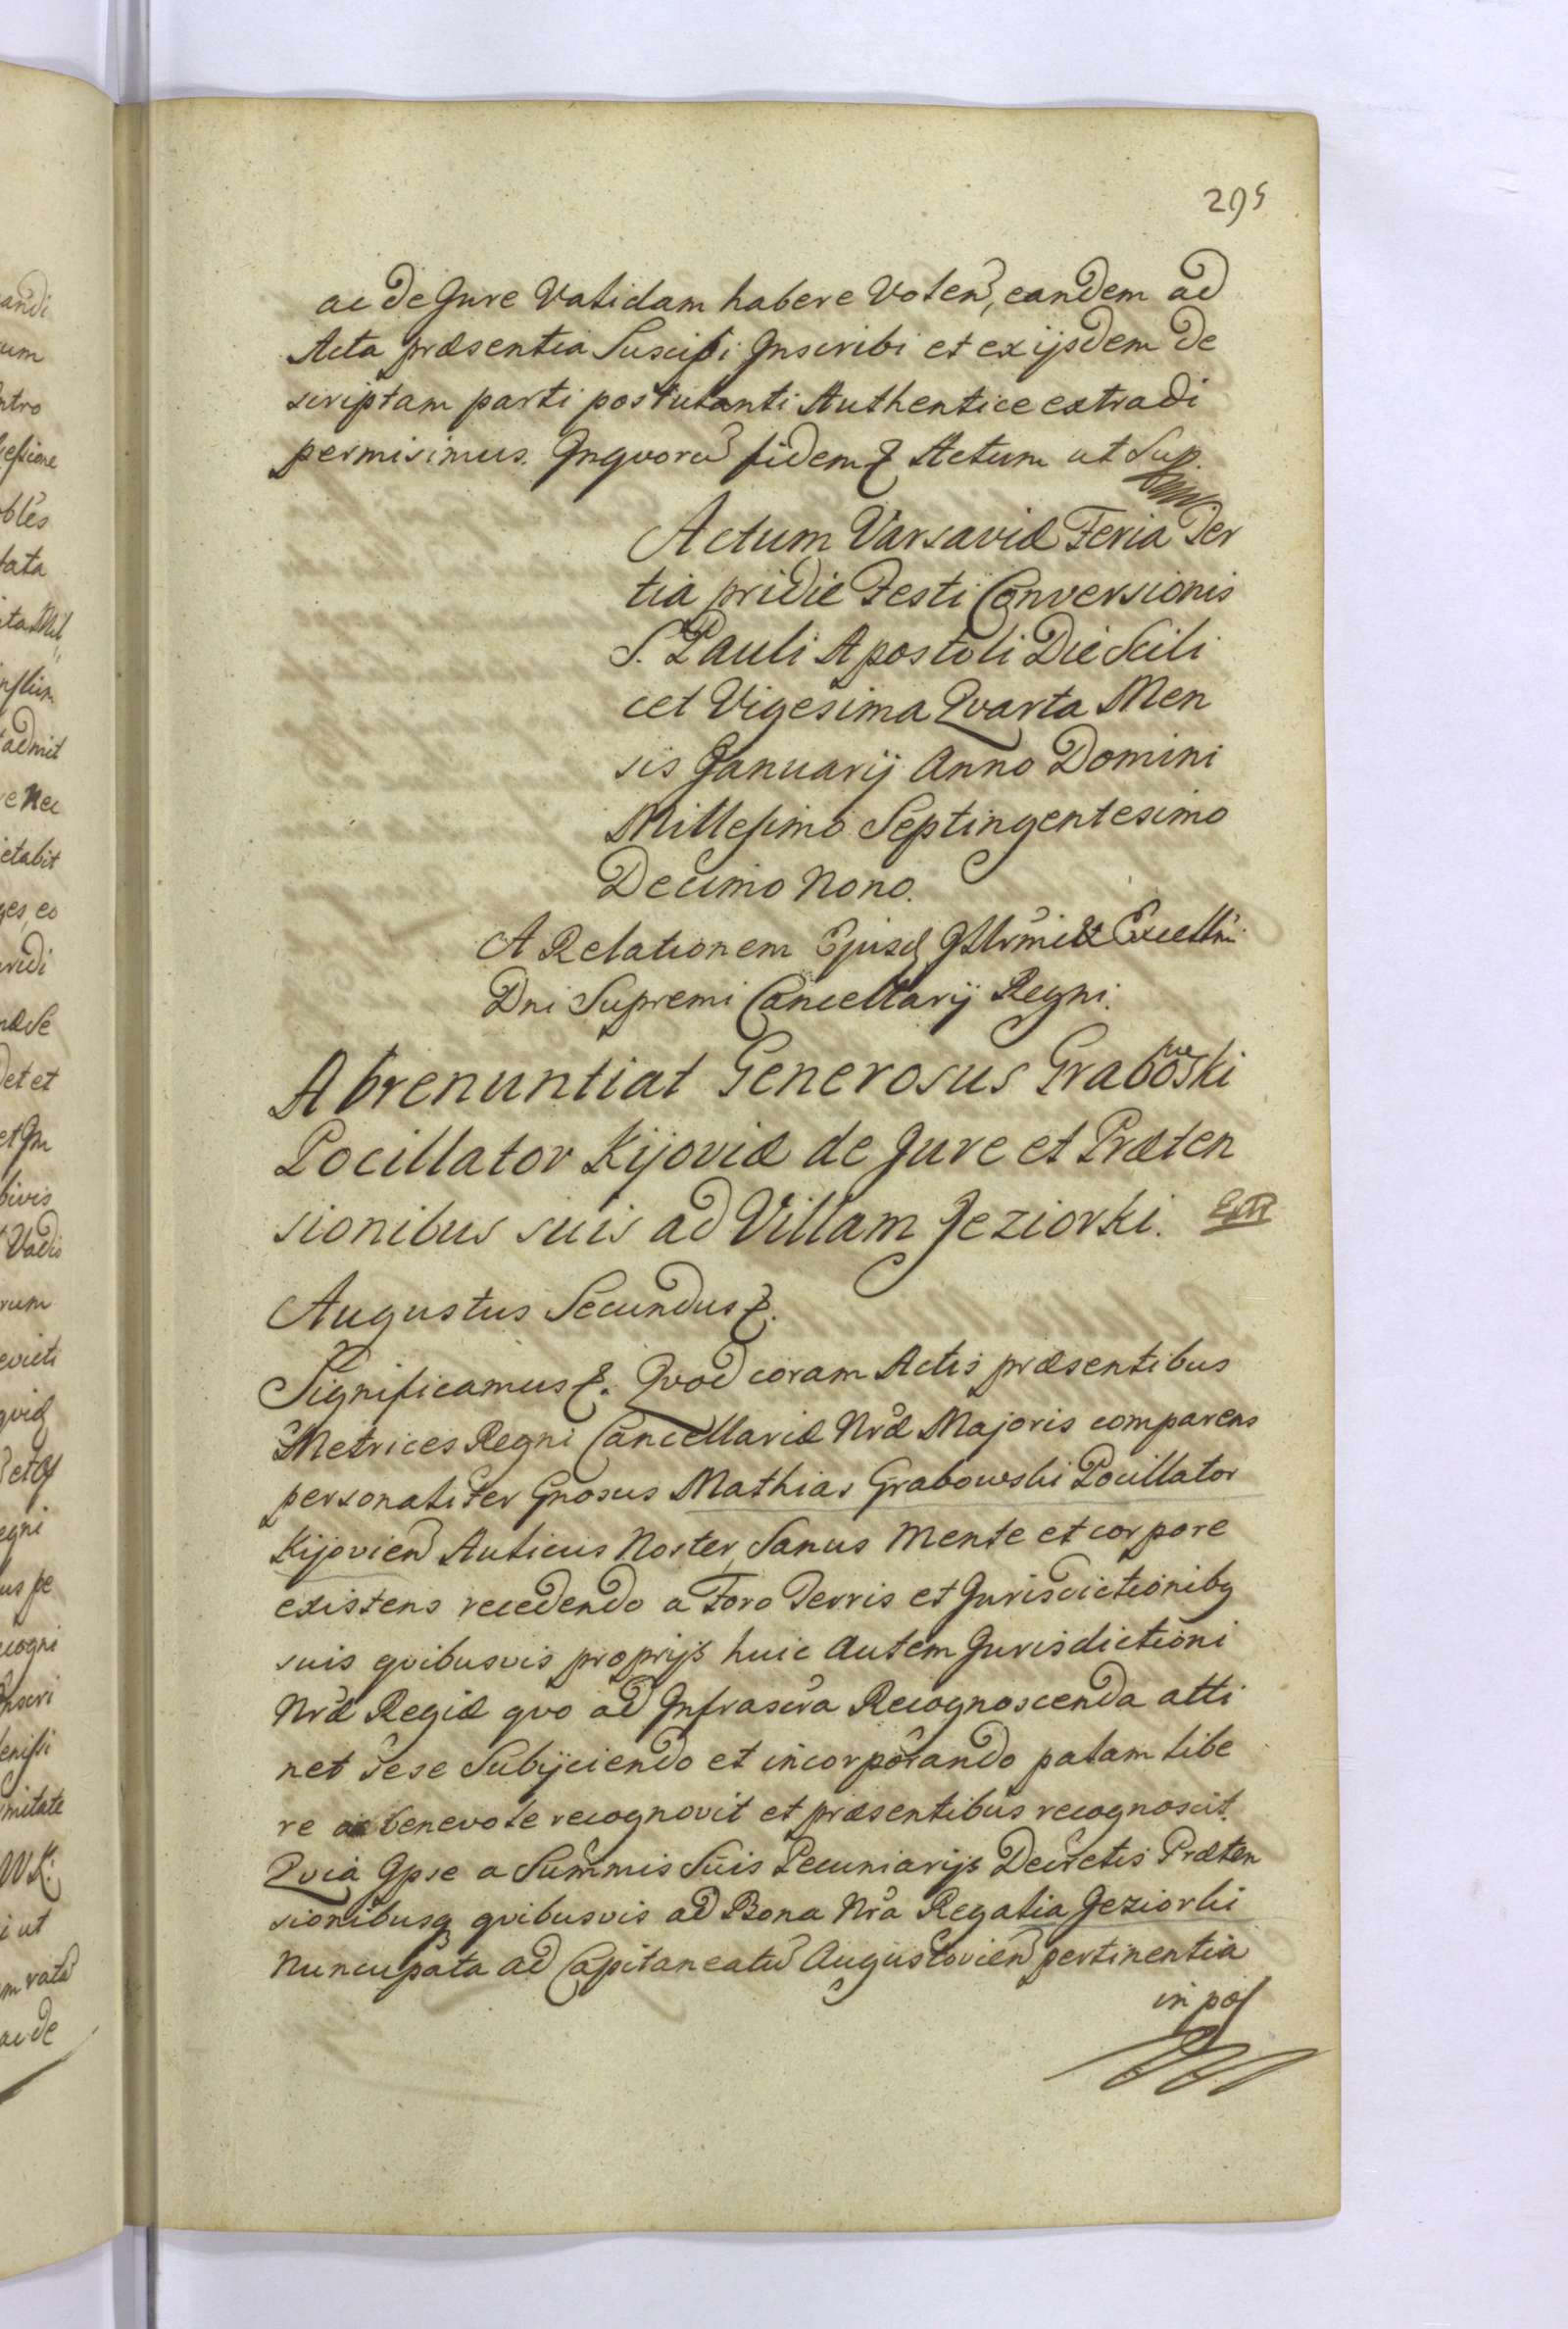 295
ac de Jure Validam habere Volen, eandem ad
Acta præsentia Suscipi Inscribi et ex ijsdem De
scriptam parti postulanti Authentice extradi
permisimus. Inquorũ fidem & Actum ut Sup.
Actum Varsaviæ Feria Ter
tia pridie Festi Conversionis
S. Pauli Apostoli Die Scili
cet Vigesima Qvarta Men
sis Januarij Anno Domini
Millesimo Septingentesimo
Decimo Nono.
A Relationem Ejusd Illrmi & Excellmi
Dni Supremi Cancellarij Regni.
Abrenuntiat Generosus Grabowski
Pocillator Kijoviæ de Jure et Præten
sionibus suis ad Villam Jeziorki.
Augustus Secundus &.
Significamus &. Qvod coram Actis præsentibus
Metrices Regni Cancellariæ Nræ Majoris comparens
personaliter Gnosus Mathias Grabowski Pocillator
Kijovien Aulicus Noster, Sanus Mente et corpore
existens recedendo a Foro Terris et Jurisdictionibq
suis qvibusvis proprijs huic autem Jurisdictioni
Nræ Regiæ qvo ad Infrascra Recognoscenda atti
net sese Subijciendo et incorporando palam libe
re ac benevole recognovit et præsentibus recognoscit.
Qvia Ipse a Summis Suis Pecuniarijs Decretis Præten
sionibusq qvibusvis ad Bona Nra Regalia Jeziorki
Nuncupata ad Capitaneatũ Augustovien pertinentia
in pos
ac de